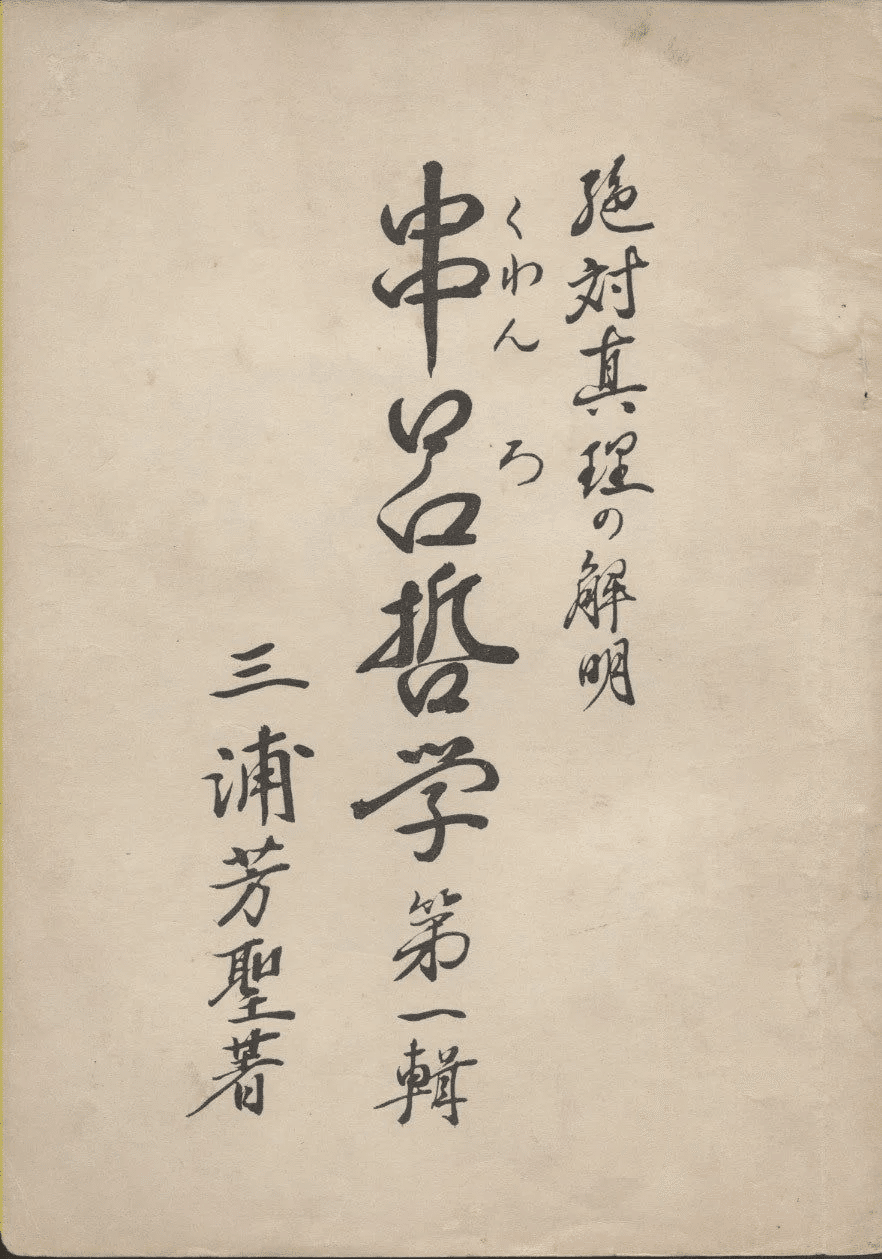 絶対真理の解明
くわんろ
串呂哲学 第一輯
三浦芳聖著